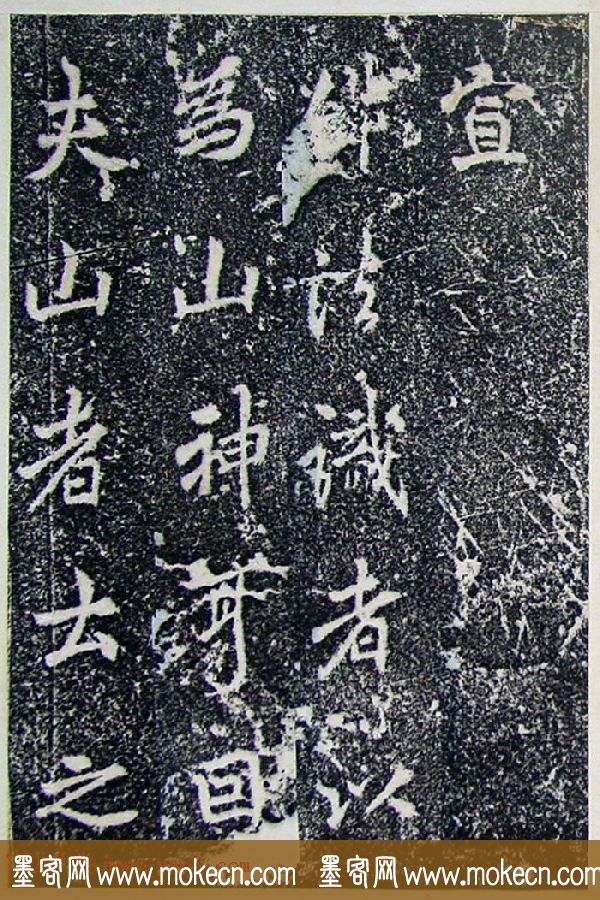 宣
識者以
為山神
夫山者土之
墨客网 www.mokecn.com 墨客网 www.mokecn.com